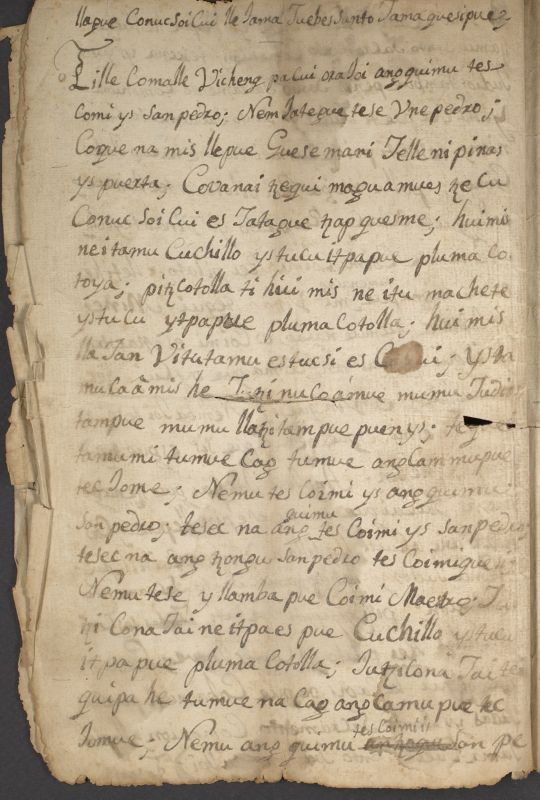 llapue Conuc Soi Cui lle Jama Tuebes Santo Jama quesipue
Tille Comalle Vicheng pa Cui ora Joi angquimu tes
Comi ys San pedro; Nem Jateque tese Vne pedro;
Coque na mis lle pue Guesemani Jelle ni pinas
ys puerta; Covanai tzequi maguamues tze Cu
Conuc Soi Cui es Tatague tzap quesme; hui mis
ne itamu Cuchillo ys tucu it papue pluma Co
toya; pitzcotolla ti hui mis ne itu machete
ystucu ytpapue pluma Cotolla; hui mis
lla San Vitutamu es tucsi es; ysta
nucaâ mis he Jutzi nucaámue mumu Judio
tampue mumu llatzitampue puen ys;
tamumi tumue Cag tumue angCammupue
tec Jome; Nemu tes Coimi ys angquimu
San pedro; tesec na ang quimu tes Coimi ys San pedro
tesec na ang tzongu San pedro tes Coimiguesi
Nemu tese y llamba pue Coimi Maestro;
tzi Cona Jai ne itpa es pue Cuchillo ystucu
it pa pue pluma Cotolla; Jutzi Cona Jai te
quipa he tumue na Cag angCamupue tec
Jomue; Nemu ang quimu tes Coimi San pe